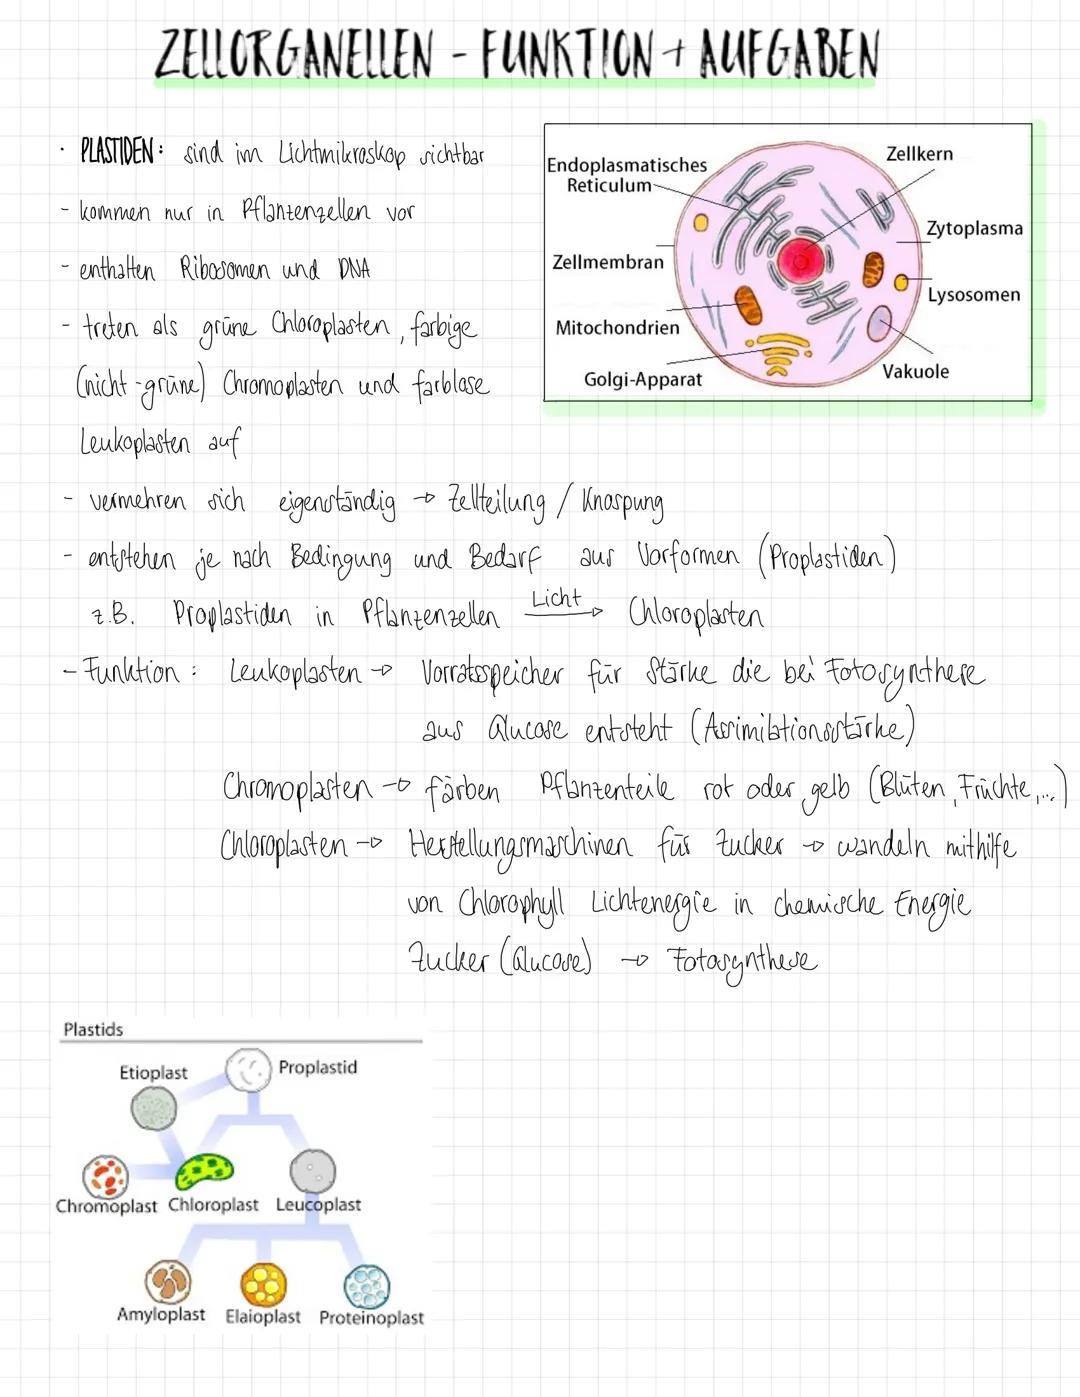 ZELLORGANELLEN - FUNKTION + AUFGABEN
· PLASTIDEN: sind im Lichtmikroskop sichtbar
- kommen nur in Pflanzenzellen vor
- enthalten Ribosomen und DNA
- treten als grüne Chloroplasten, farbige
(nicht-grüne) Chromoplasten und farblose
Leukoplasten auf
Endoplasmatisches
Reticulum
Zellkern
Zytoplasma
Zellmembran
Lysosomen
Mitochondrien
Vakuole
Golgi-Apparat
- vermehren sich eigenständig → Zellteilung / Knospung
- entstehen je nach Bedingung und Bedarf aus Vorformen (Proplastiden)
z.B. Proplastiden in Pflanzenzellen Licht → Chloroplasten
- Funktion: Leukoplasten → Vorratsspeicher für Stärke die bei Fotosynthese
aus Glucose entsteht (Assimilationsstärke)
Chromoplasten → färben Pflanzenteile rot oder gelb (Blüten, Früchte,...)
Chloroplasten → Herstellungsmaschinen für Zucker → wandeln mithilfe
von Chlorophyll Lichtenergie in chemische Energie
Zucker (Glucose) → Fotosynthese
Plastids
Etioplast
Proplastid
Chromoplast Chloroplast Leucoplast
Amyloplast Elaioplast Proteinoplast